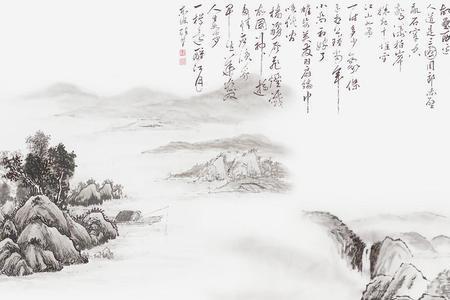 壘西邊
人道是三國周郎赤壁
亂石穿空
驚濤拍岸
捲起千堆雪
江山如畫
一時多少豪傑
遙想公瑾當年
小喬初嫁了
雄姿英發羽扇綸巾
談笑間
檣櫓灰飛煙滅
故國神遊
多情應笑我
早生華髮
人生如夢
一樽還酹江月